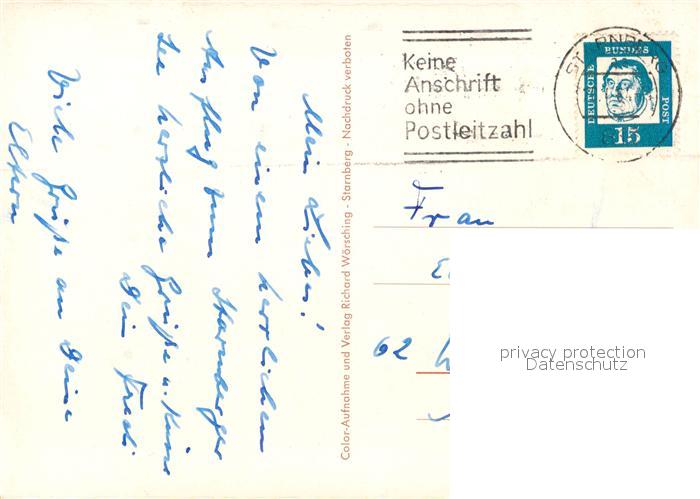 Mein Liebes!
Von einem herrlichen
Ausflug zum Starnberger
See herzliche Grüße u. Küsse
Dein Fredi
Viele Grüße an Deine
Eltern
Color-Aufnahme und Verlag Richard Wörsching - Starnberg - Nachdruck verboten
Keine
Anschrift
ohne
Postleitzahl
STARNBERG
DEUTSCHE BUNDES POST
15
Frau
62
privacy protection
Datenschutz